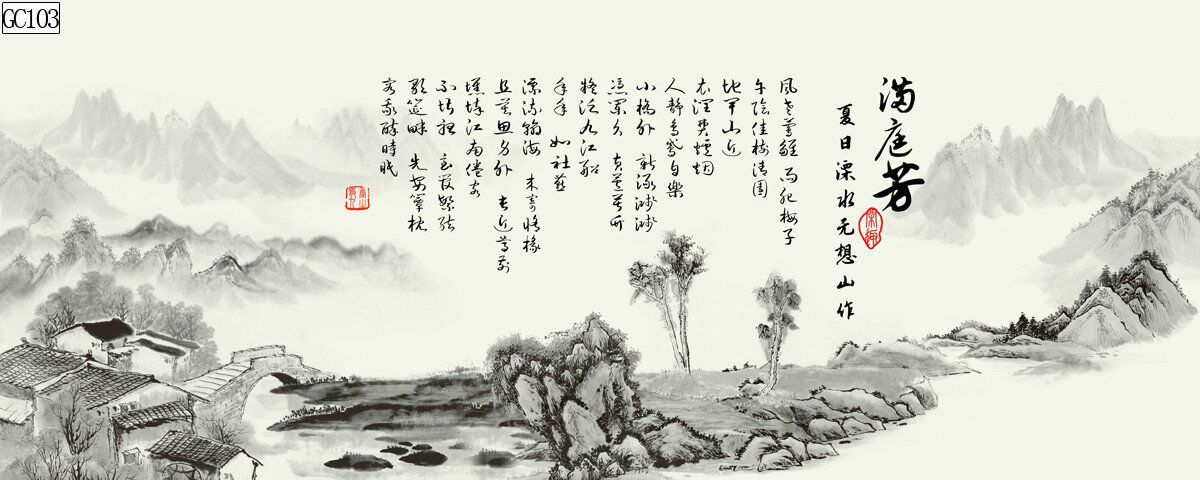 GC103
满庭芳
夏日溧水无想山作
风老莺雏 雨肥梅子
午陰佳树清圆
地卑山近
衣润费爐烟
人静乌鸢自樂
小桥外 新渌溅溅
凭阑久 黄芦苦竹
拟泛九江船
年年 如社燕
漂流瀚海 来寄修椽
且莫思身外 长近尊前
憔悴江南倦客
不堪听 急管繁弦
歌筵畔 先安簟枕
容我醉時眠